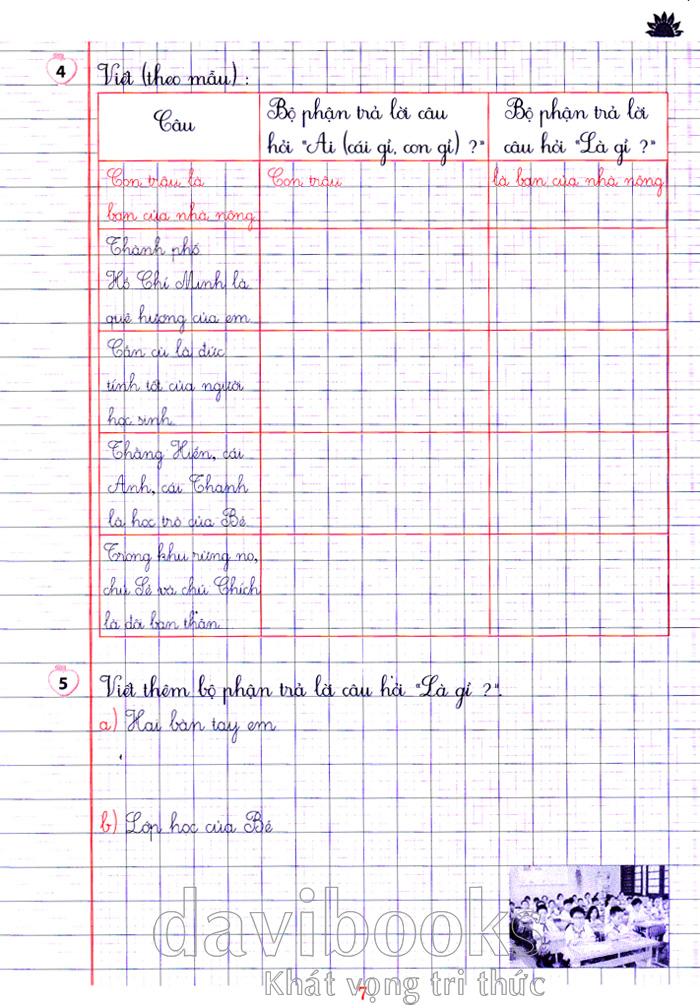 4 Viết (theo mẫu) :
Câu
Bộ phận trả lời câu
hỏi "Ai (cái gì, con gì) ?"
Bộ phận trả lời
câu hỏi "Là gì ?"
Con trâu là
bạn của nhà nông.
Con trâu
là bạn của nhà nông.
Thành phố
Hồ Chí Minh là
quê hương của em.
Cần cù là đức
tính tốt của người
học sinh.
Thằng Hiển, cái
Anh, cái Thanh
là học trò của Bé.
Trong khu rừng nọ,
chú Sẻ và chú Chích
là đôi bạn thân.
5 Viết thêm bộ phận trả lời câu hỏi "Là gì ?".
a) Hai bàn tay em
b) Lớp học của Bé
davibooks
Khát vọng tri thức
7